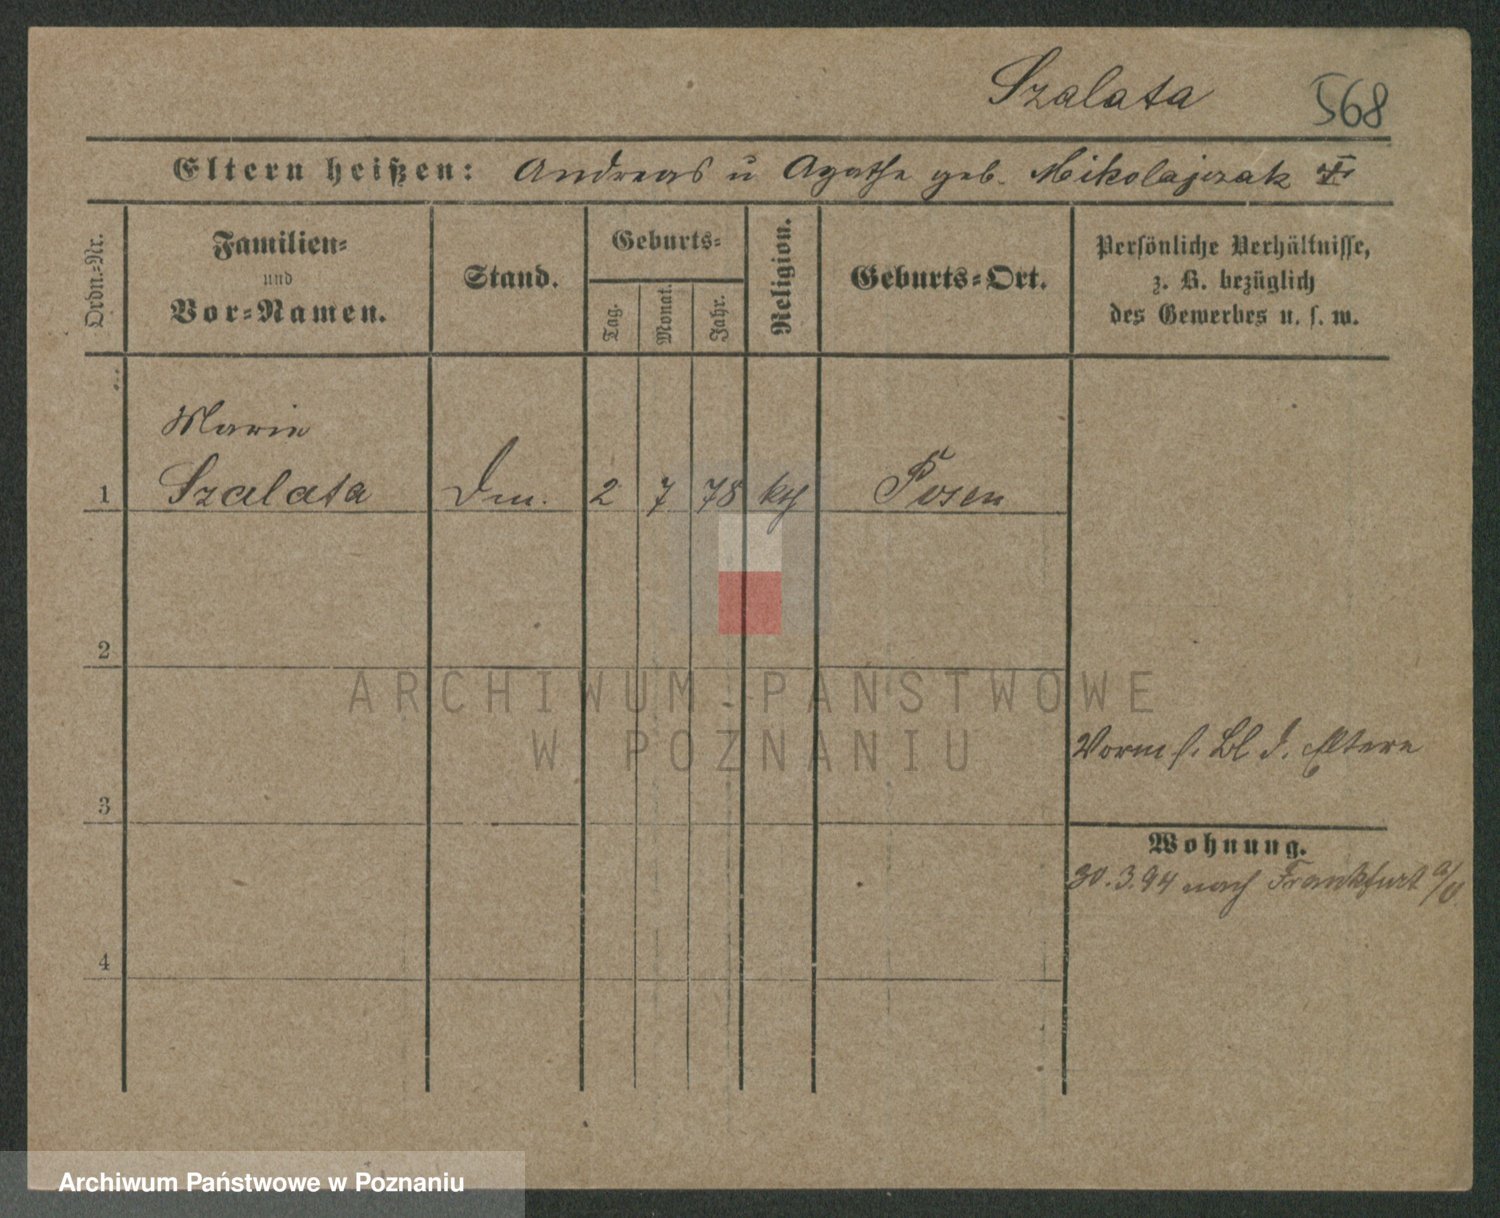 Szalata 568
Eltern heißen: Andreas u Agathe geb. Mikolajczak
Ordn.-Nr.
Familien-
und
Vor-Namen.
Stand.
Geburts-
Tag.
Monat.
Jahr.
Religion.
Geburts-Ort.
Persönliche Verhältnisse,
z. B. bezüglich
des Gewerbes u. s. w.
Marie
1 Szalata 2 7 78 kth Posen
2
ARCHIWUM PAŃSTWOWE
W POZNANIU
Vorm s. Bl d. Eltern
3
Wohnung.
30.3.94 nach Frankfurt a/O
4
Archiwum Państwowe w Poznaniu